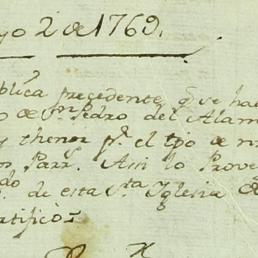 yo 2 de 1769.
blica precedente que hac
o de Sn. Pedro del Alam
y thenor pr. el tpo de n
on Parr. Assi lo Prove
do. de esta Sta. Iglesia
ertificò=